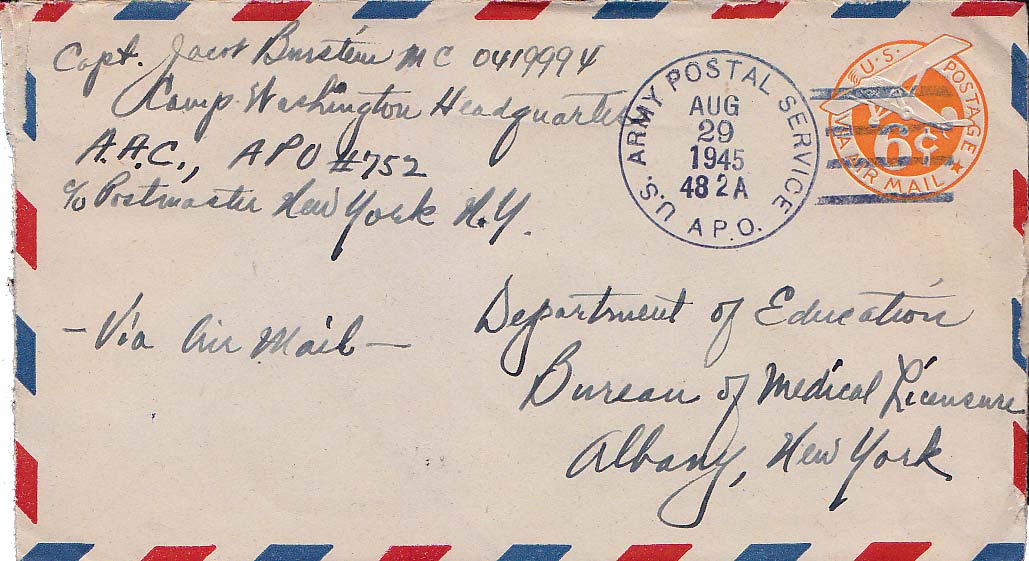 Capt. Jacob Burstein MC 0419994
Camp Washington Headquarters
A.A.C., APO #752
c/o Postmaster New York N.Y.
U.S. ARMY POSTAL SERVICE
AUG
29
1945
482A
A.P.O.
U.S. POSTAGE
6¢
VIA AIR MAIL
- Via Air Mail -
Department of Education
Bureau of Medical Licensure
Albany, New York